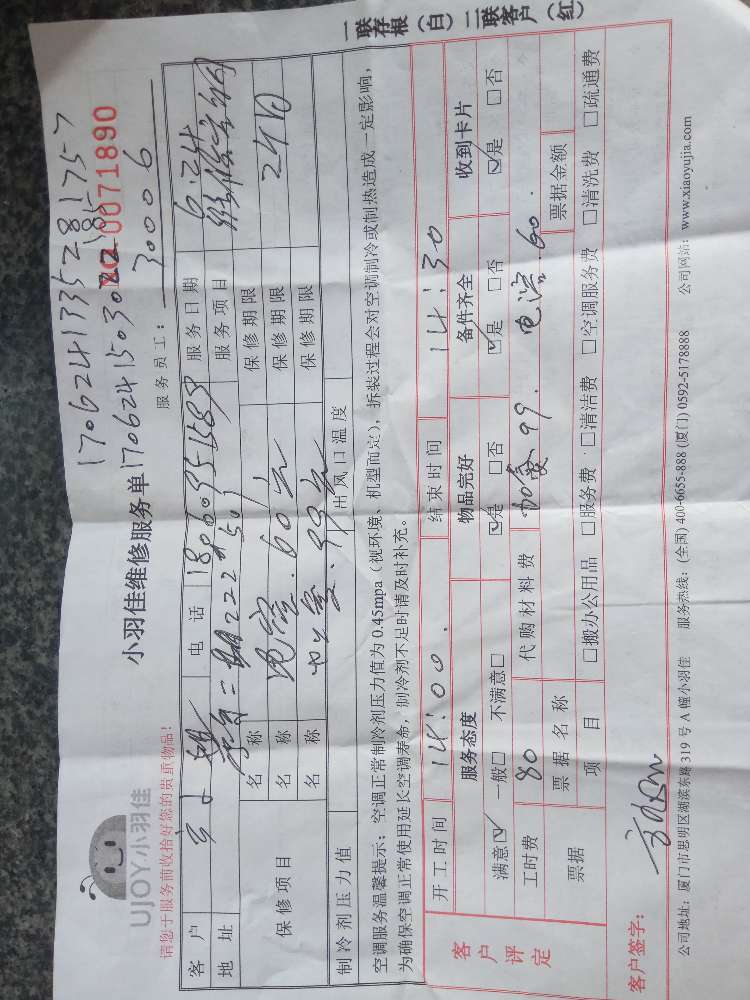 一联存根（白）二联客户（红）
1706241335281757
UJOY小羽佳
小羽佳维修服务单
NO.0071890
请您于服务前收拾好您的贵重物品！
服务员工：30006
客户
电话
服务日期 6.24
地址
服务项目
保修项目
名称 电容.60元
保修期限 24日
名称 加氟.99元
保修期限
名称
保修期限
制冷剂压力值
出风口温度
空调服务温馨提示：空调正常制冷剂压力值为0.45mpa（视环境、机型而定），拆装过程会对空调制冷或制热造成一定影响，
为确保空调正常使用延长空调寿命，制冷剂不足时请及时补充。
客户评定
开工时间 14:00
结束时间 14:30
服务态度 物品完好 备件齐全 收到卡片
满意☑ 一般□ 不满意□ ☑是 □否 ☑是 □否 ☑是 □否
工时费 80 代购材料费 加氟99. 电容60.
票据 票据名称 票据金额
项目 □搬办公用品 □服务费 □清洁费 □空调服务费 □清洗费 □疏通费
客户签字：
公司地址：厦门市思明区湖滨东路319号A幢小羽佳 服务热线：(全国) 400-6655-888 (厦门) 0592-5178888 公司网站：www.xiaoyujia.com